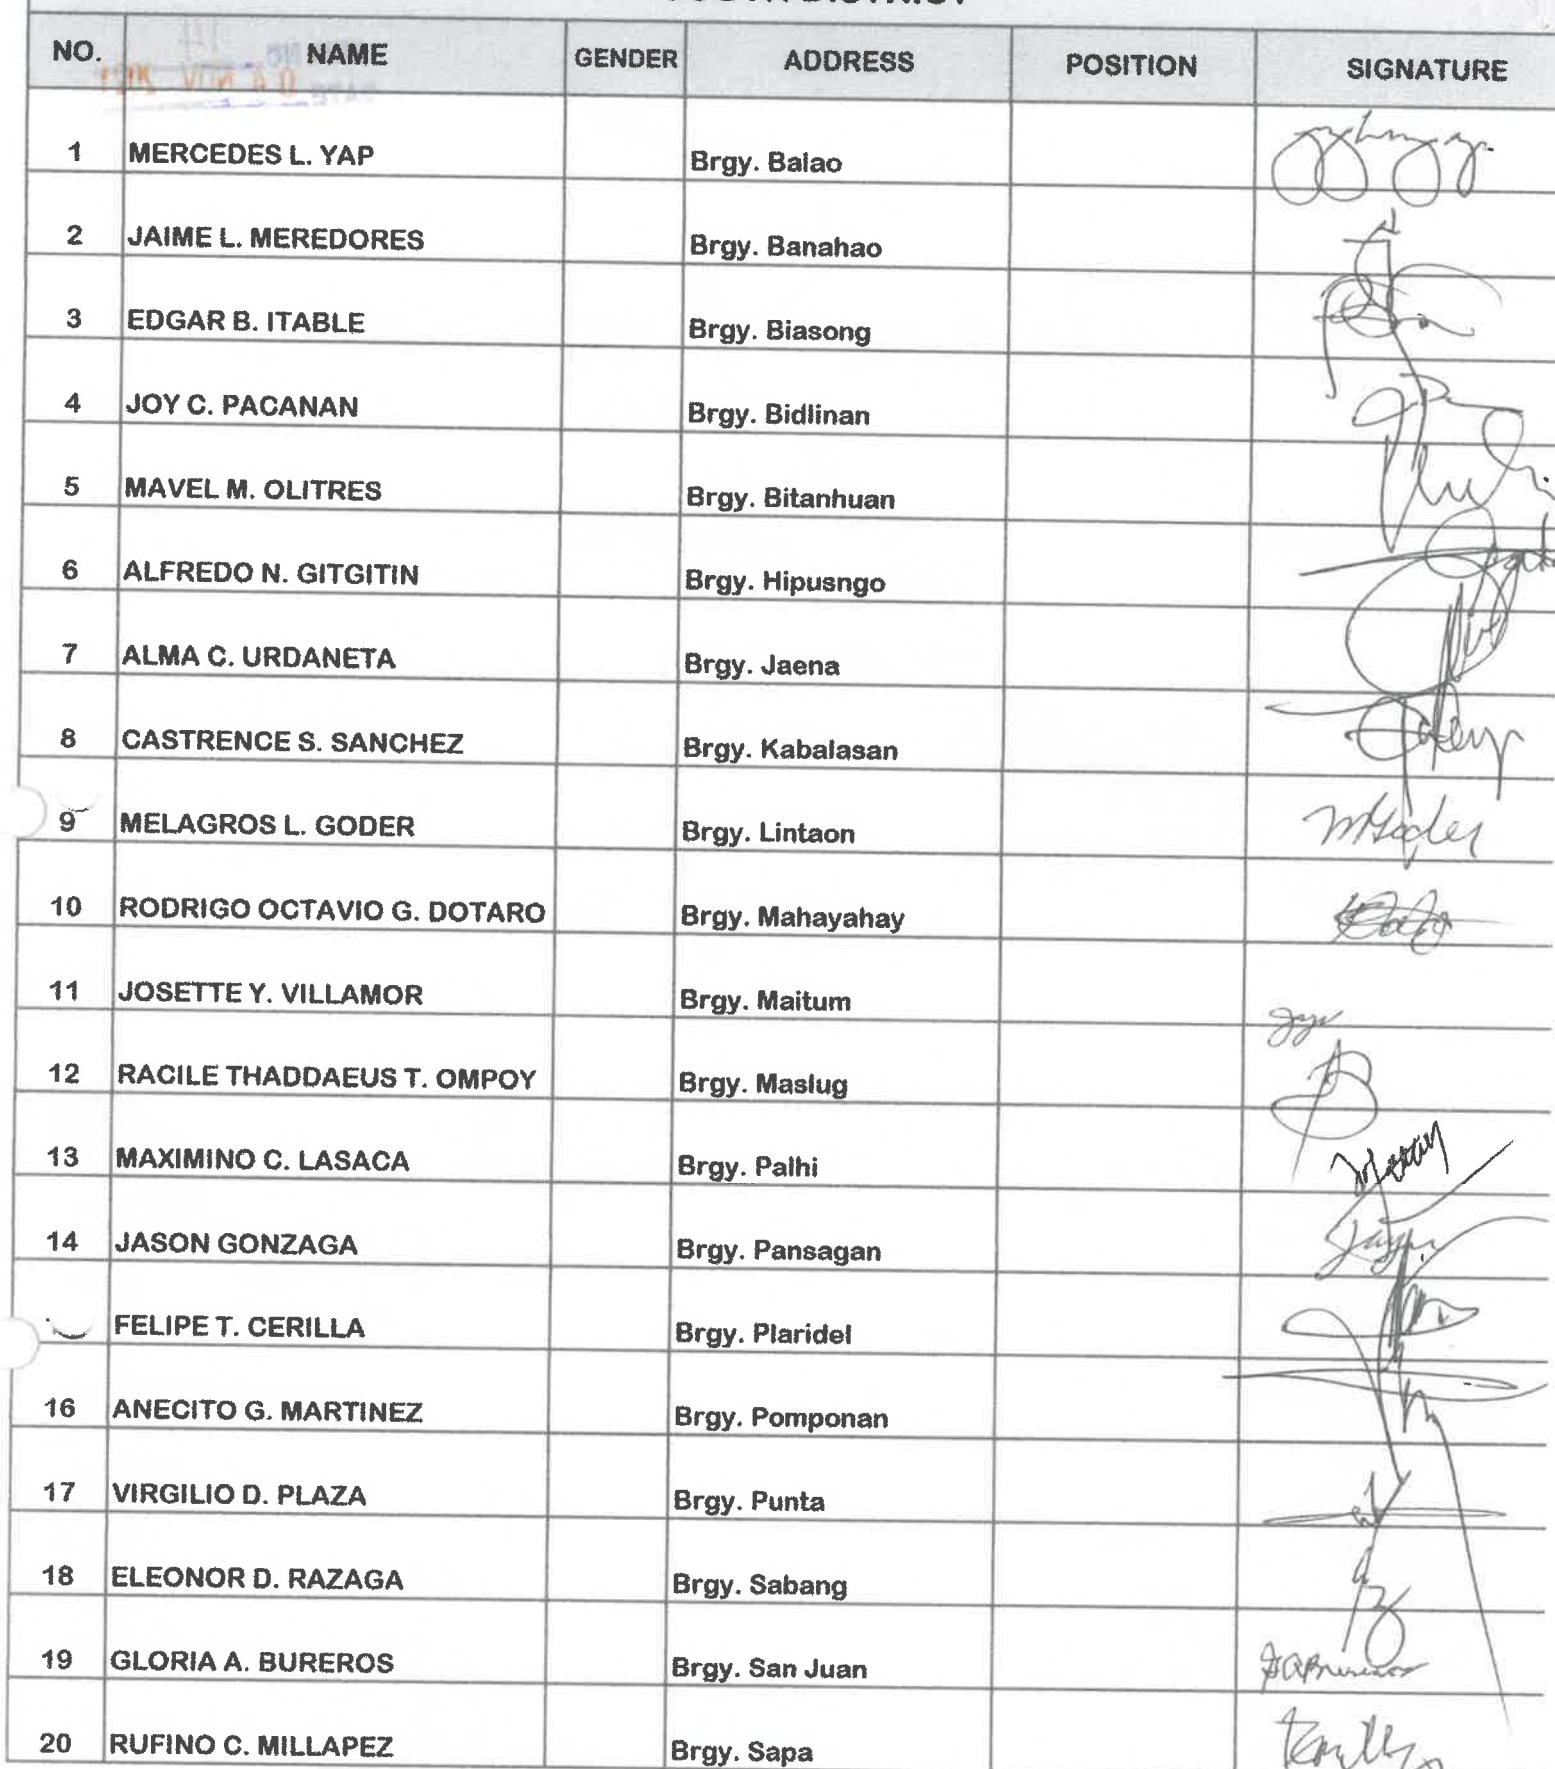 NO. NAME GENDER ADDRESS POSITION SIGNATURE
1 MERCEDES L. YAP Brgy. Balao
2 JAIME L. MEREDORES Brgy. Banahao
3 EDGAR B. ITABLE Brgy. Biasong
4 JOY C. PACANAN Brgy. Bidlinan
5 MAVEL M. OLITRES Brgy. Bitanhuan
6 ALFREDO N. GITGITIN Brgy. Hipusngo
7 ALMA C. URDANETA Brgy. Jaena
8 CASTRENCE S. SANCHEZ Brgy. Kabalasan
9 MELAGROS L. GODER Brgy. Lintaon
10 RODRIGO OCTAVIO G. DOTARO Brgy. Mahayahay
11 JOSETTE Y. VILLAMOR Brgy. Maitum
12 RACILE THADDAEUS T. OMPOY Brgy. Maslug
13 MAXIMINO C. LASACA Brgy. Palhi
14 JASON GONZAGA Brgy. Pansagan
FELIPE T. CERILLA Brgy. Plaridel
16 ANECITO G. MARTINEZ Brgy. Pomponan
17 VIRGILIO D. PLAZA Brgy. Punta
18 ELEONOR D. RAZAGA Brgy. Sabang
19 GLORIA A. BUREROS Brgy. San Juan
20 RUFINO C. MILLAPEZ Brgy. Sapa